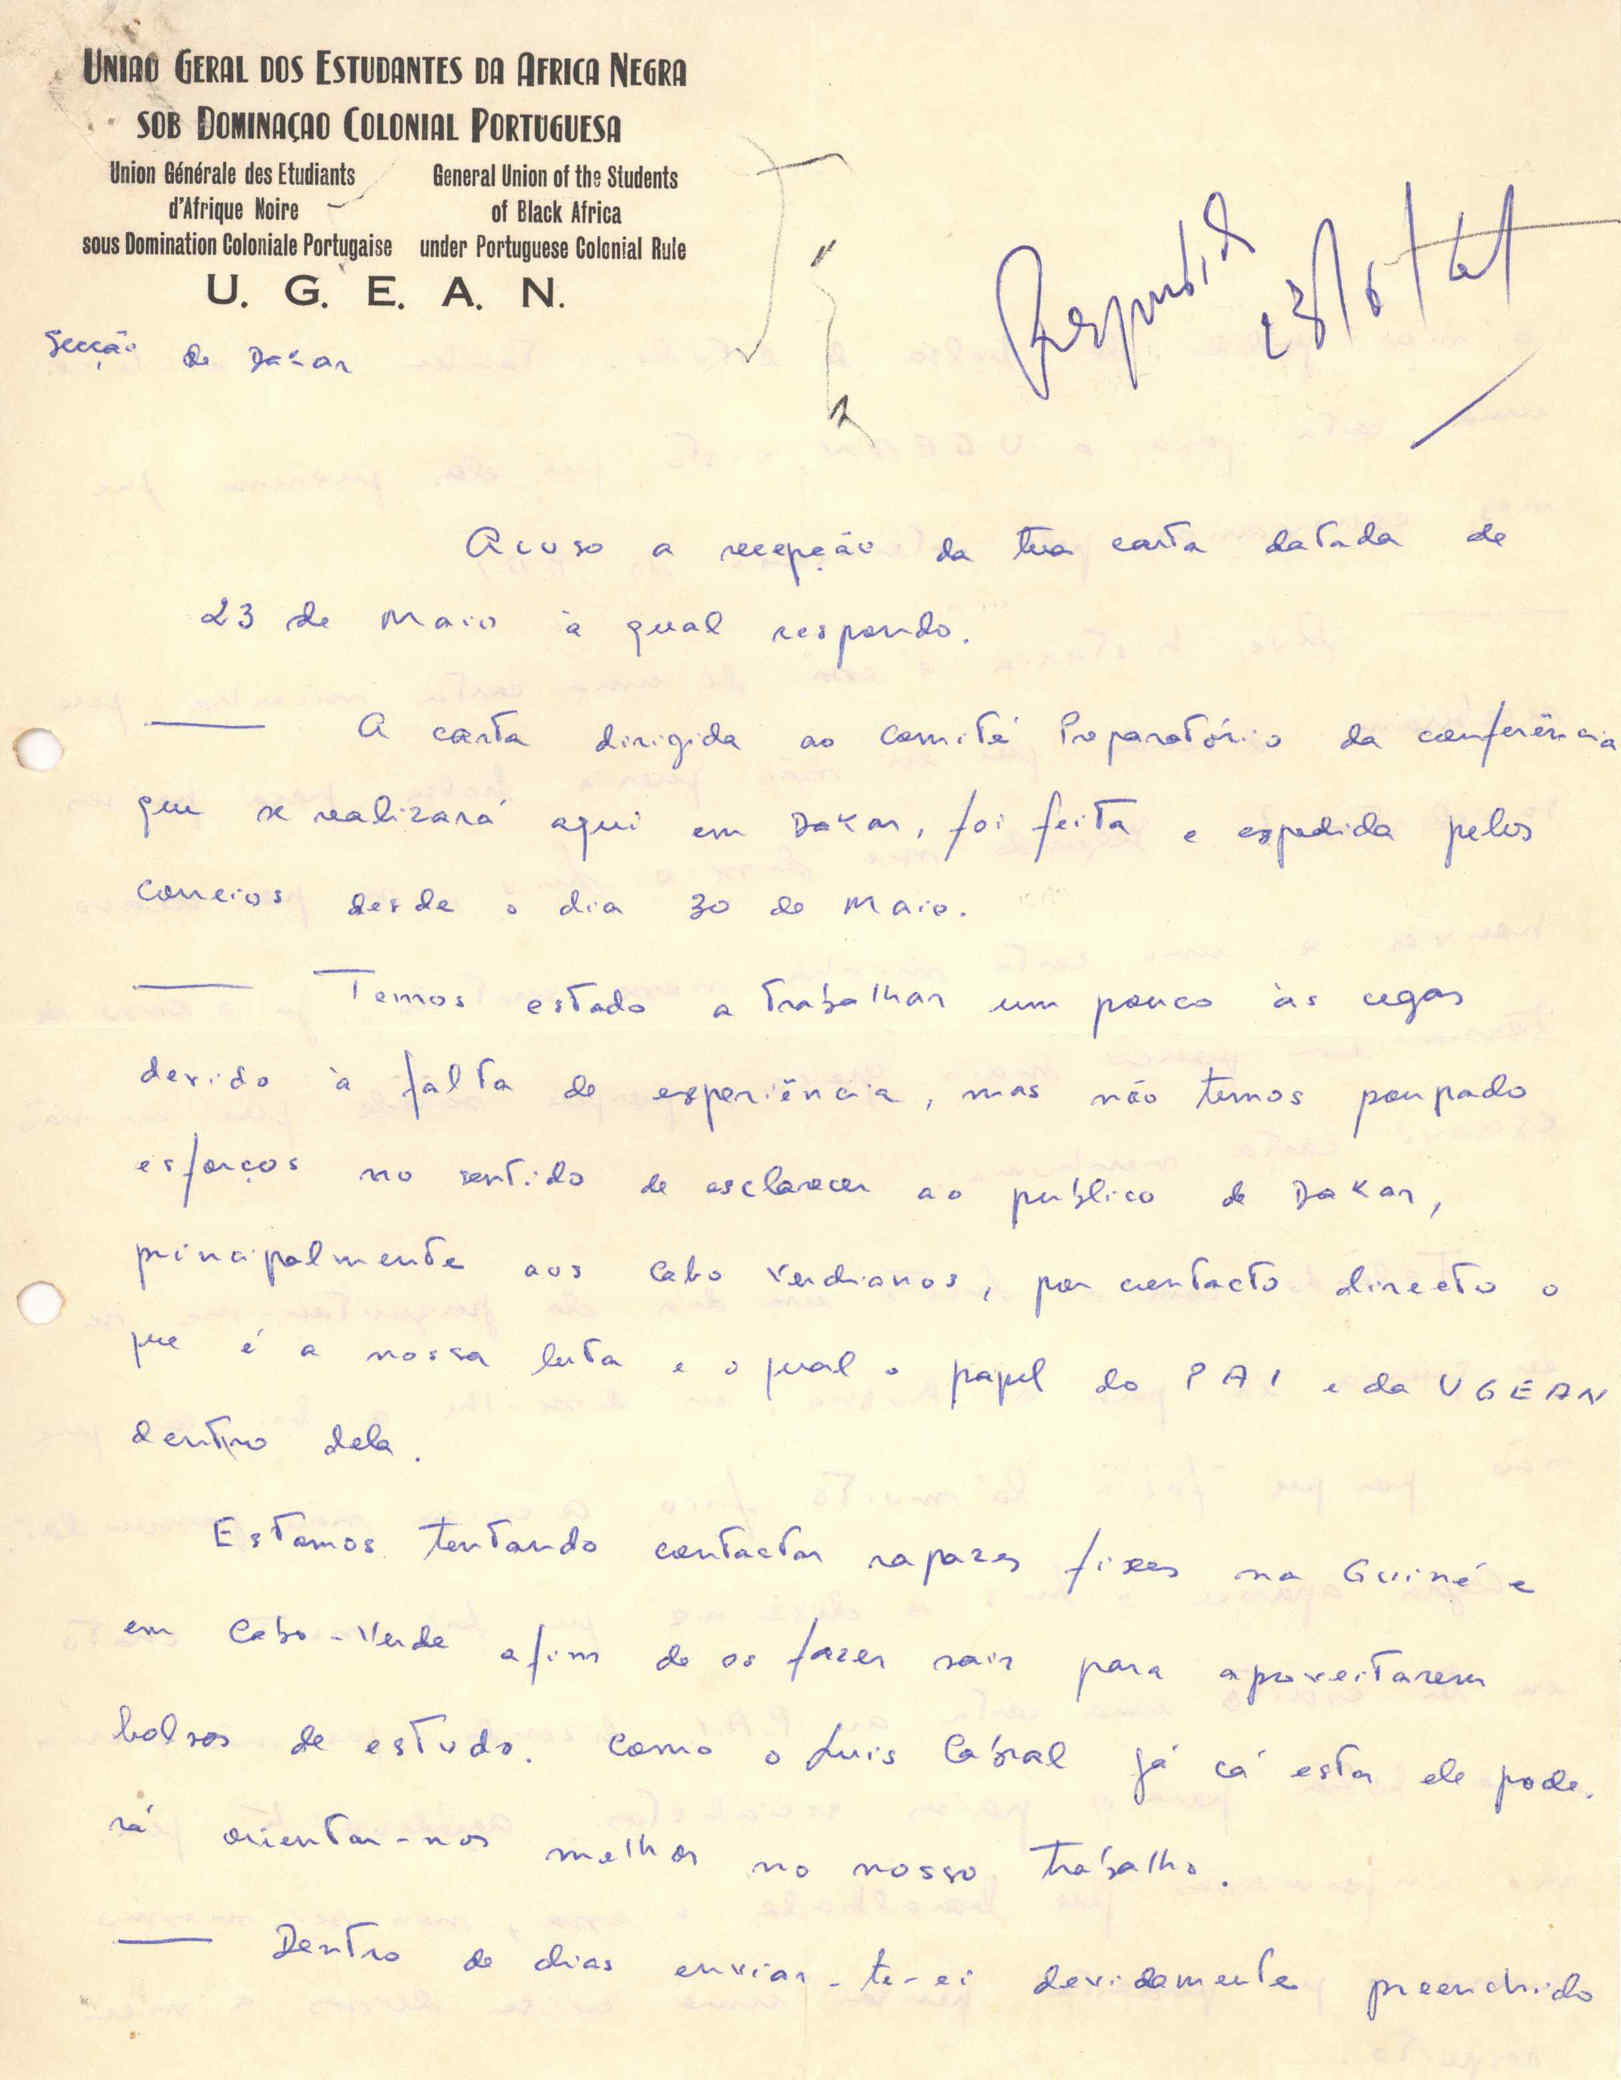 UNIAO GERAL DOS ESTUDANTES DA AFRICA NEGRA
SOB DOMINAÇAO COLONIAL PORTUGUESA
Union Générale des Etudiants
d'Afrique Noire
sous Domination Coloniale Portugaise
General Union of the Students
of Black Africa
under Portuguese Colonial Rule
U. G. E. A. N.
Secção de Dakar
Respondida
23/6/61
Acuso a recepção da tua carta datada de
23 de Maio à qual respondo.
— A carta dirigida ao Comité Preparatório da conferência
que se realizará aqui em Dakar, foi feita e expedida pelos
correios desde o dia 30 de Maio.
— Temos estado a trabalhar um pouco às cegas
devido à falta de experiência, mas não temos poupado
esforços no sentido de esclarecer ao publico de Dakar,
principalmente aos Cabo Verdianos, por contacto directo o
que é a nossa luta e o qual o papel do PAI e da UGEAN
dentro dela.
Estamos tentando contactar rapazes fixes na Guiné e
em Cabo-Verde afim de os fazer sair para aproveitarem
bolsas de estudo. Como o Luis Cabral já cá esta ele pode-
rá orientar-nos melhor no nosso trabalho.
— Dentro de dias enviar-te-ei devidamente preenchido